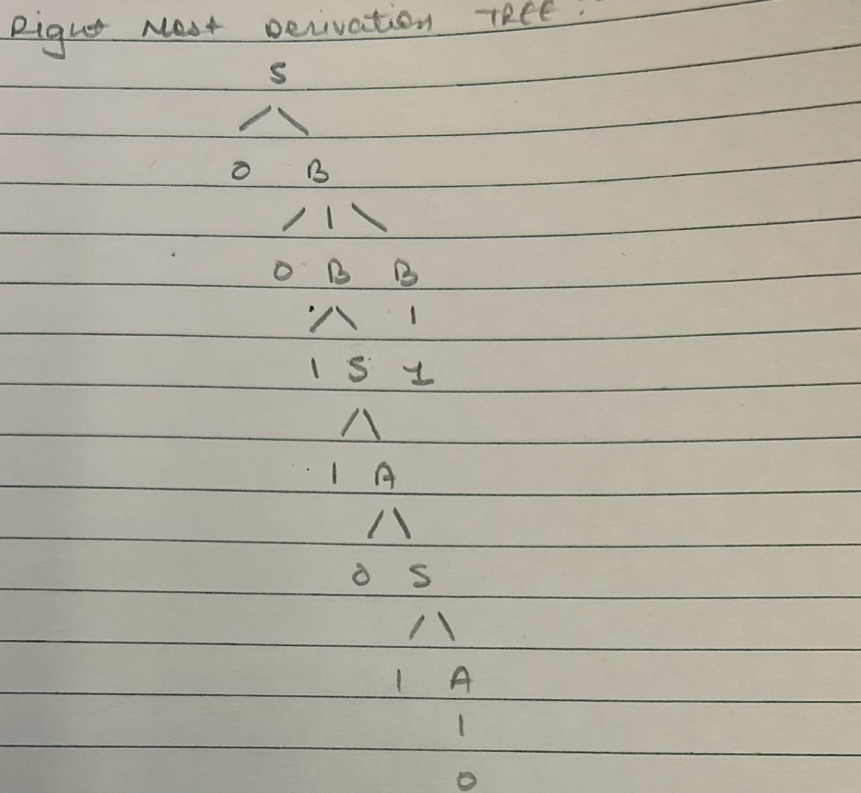 Right Most Derivation TREE:
S
0 B
0 B B
1 S 1
1 A
0 S
1 A
0